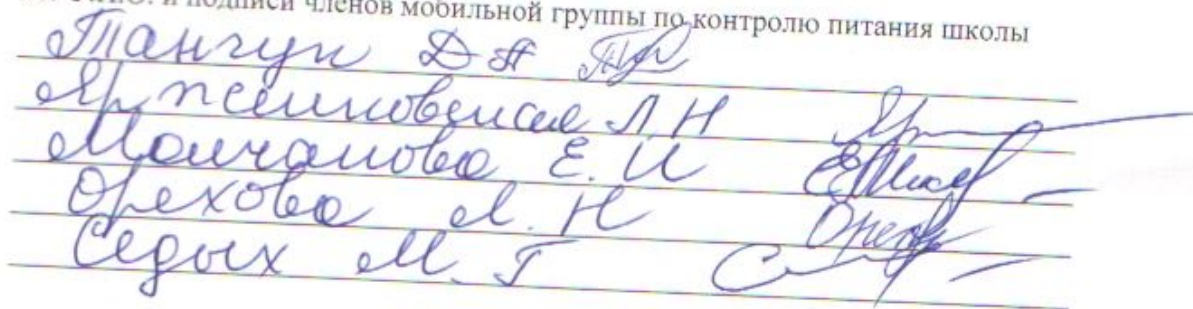 Ф.И.О. и подписи членов мобильной группы по контролю питания школы
Танчук Д А
Л Н
Молчанова Е. И
Орехова Л. Н
Седых М. Г